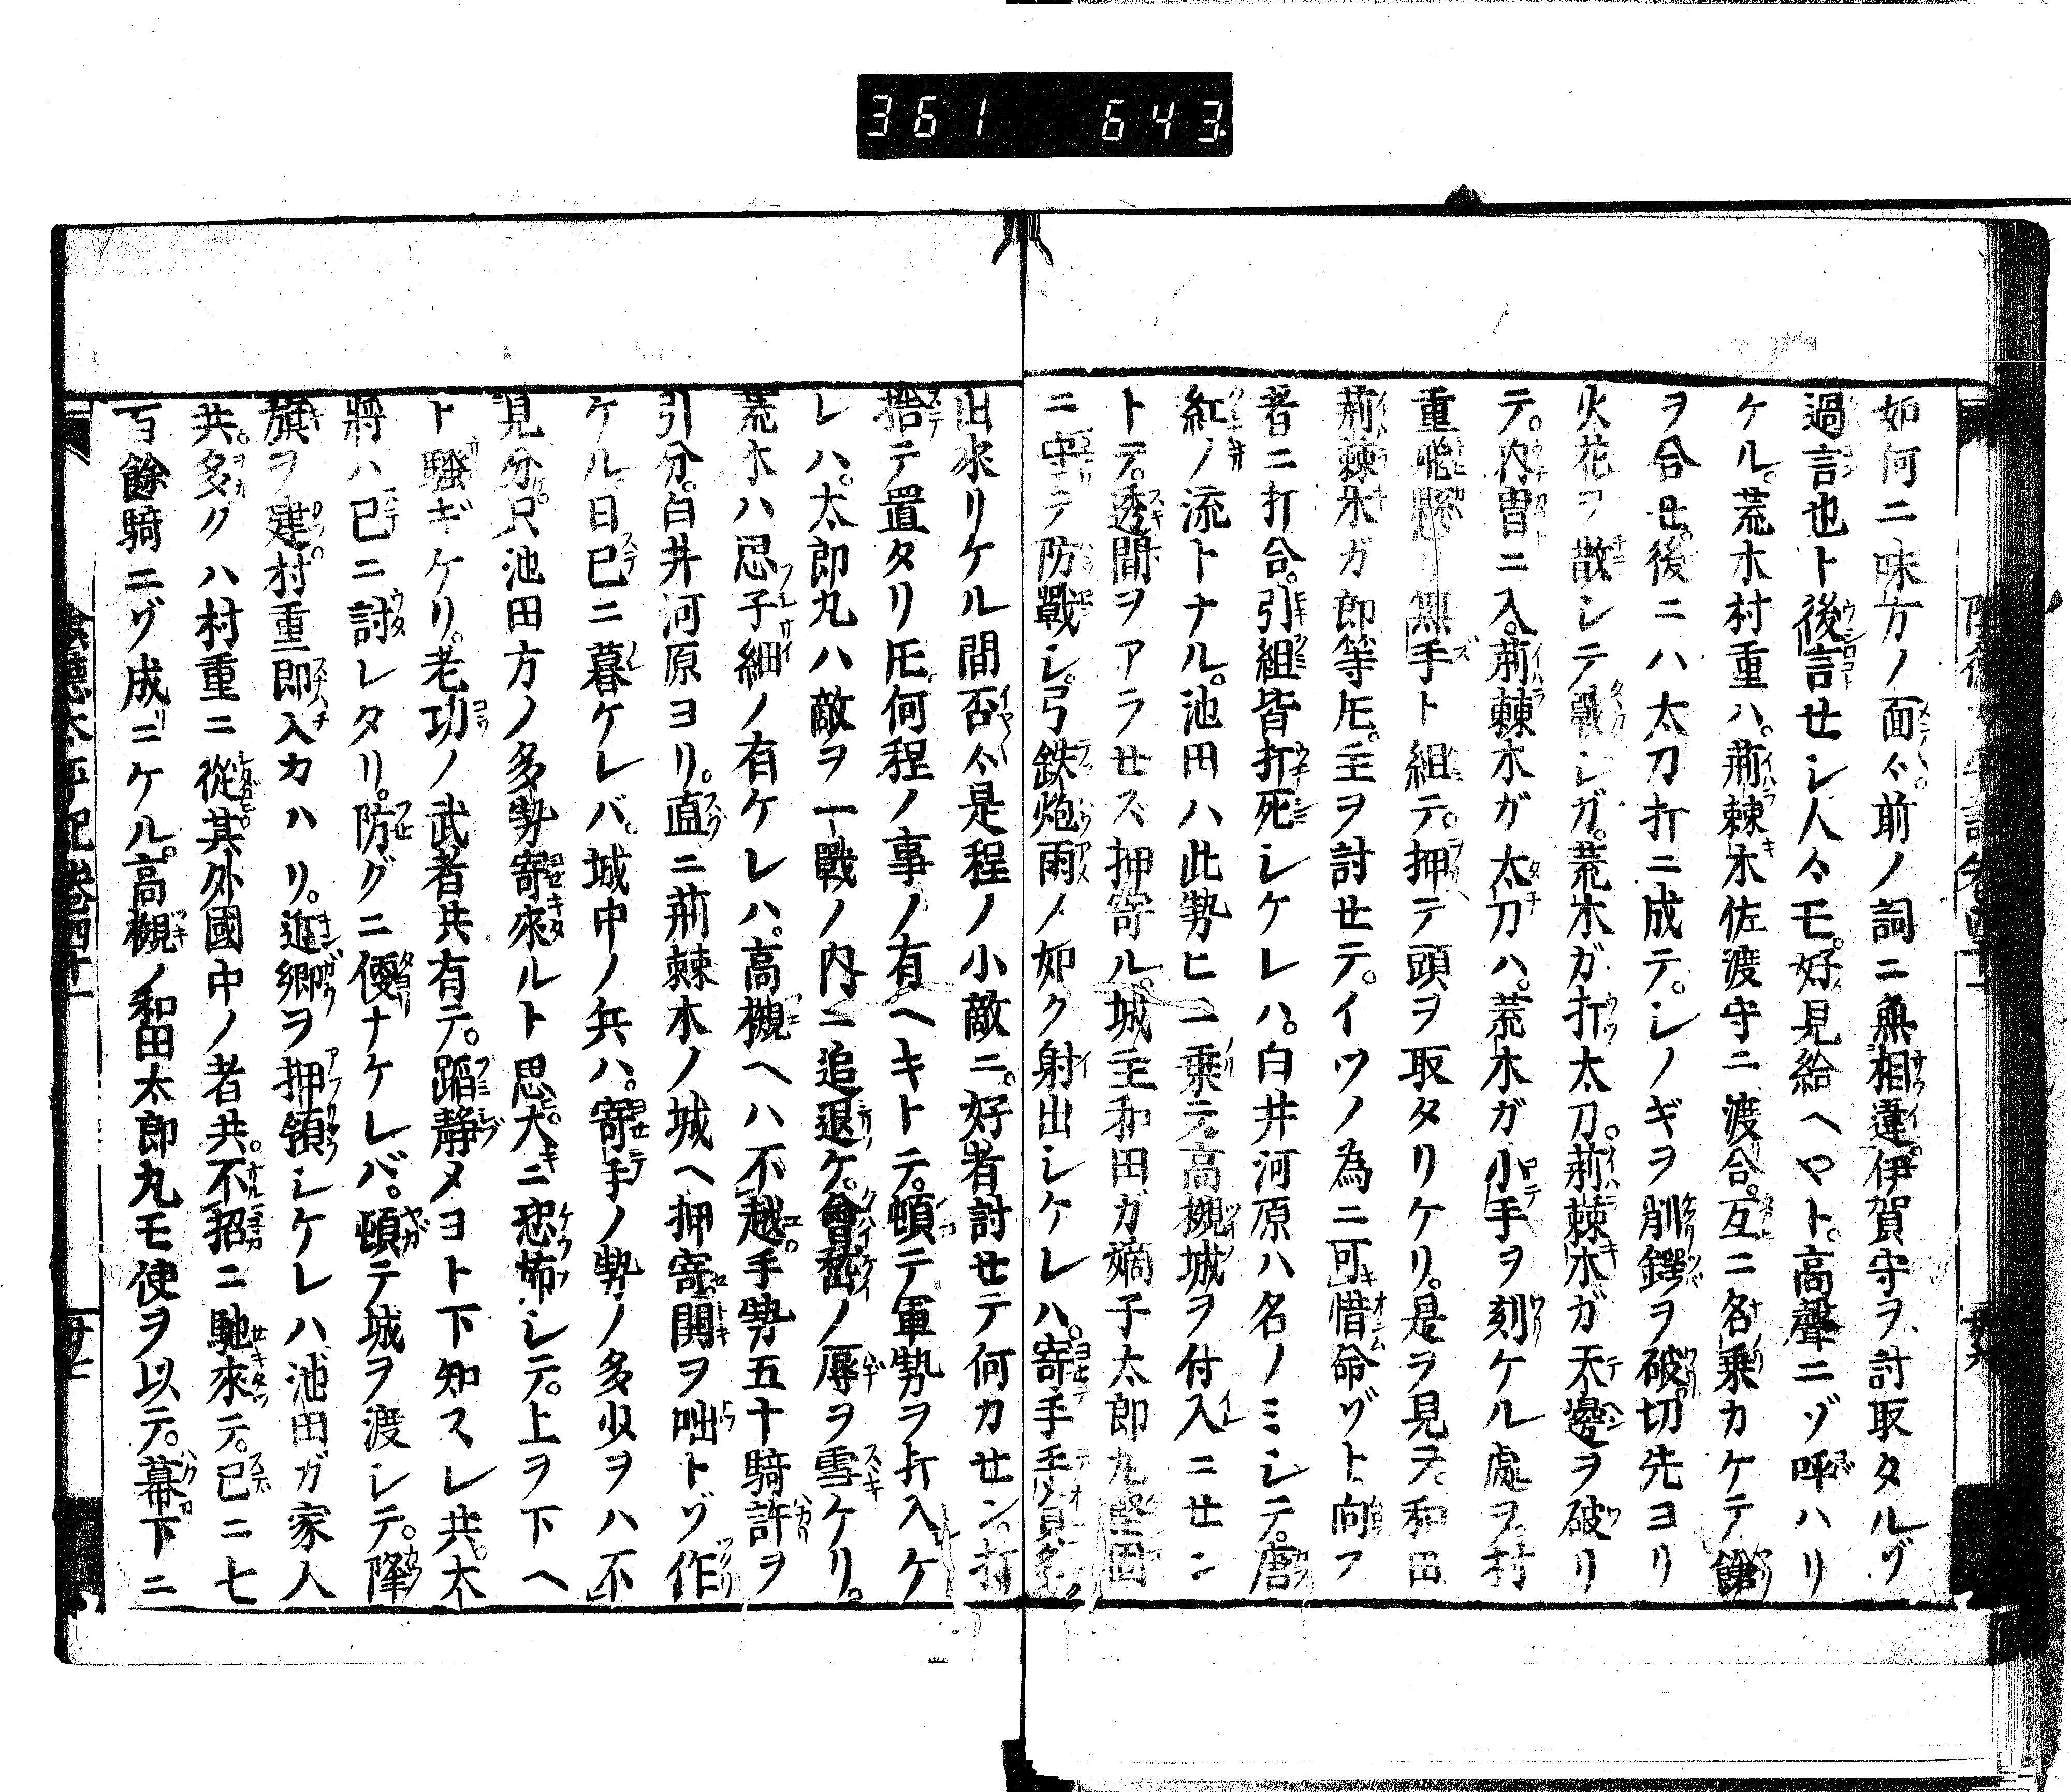 361 643
如何ニ味方ノ面々。前ノ詞ニ無相違。伊賀守ヲ討取タルゾ
過言也ト後言セシ人々モ。好見給ヘヤト。高聲ニゾ呼ハリ
ケル。荒木村重ハ。荊棘木佐渡守ニ渡合。互ニ名乗カケテ鎗
ヲ合セ。後ニハ太刀打ニ成テ。シノギヲ削鍔ヲ破。切先ヨリ
火花ヲ散シテ戰シガ。荒木ガ打太刀。荊棘木ガ天邊ヲ破リ
テ。内冑ニ入。荊棘木ガ太刀ハ。荒木ガ小手ヲ刻ケル處ヲ。村
重 懸リ無手ト組テ。押テ頭ヲ取タリケリ。是ヲ見ヲ。和田
荊棘木ガ郎等𪜈。主ヲ討セテ。イツノ為ニ可惜命ゾト向フ
者ニ打合。引組皆打死シケレハ。白井河原ハ名ノミシテ。唐
紅ノ流トナル。池田ハ此勢ヒニ乗テ。高槻城ヲ付入ニセン
トテ。透間ヲアラセズ押寄ル。城主和田ガ嫡子太郎九堅固
ニ守テ防戰シ。弓鉄炮雨ノ如ク射出シケレハ。寄手手負多ク
出來リケル間否々是程ノ小敵ニ。好者討セテ何カセン。打
捨テ置タリ𪜈何程ノ事ノ有ヘキトテ。頓テ軍勢ヲ打入ケ
レハ。太郎丸ハ敵ヲ一戰ノ内ニ追退ケ。會嵆ノ辱ヲ雪ケリ。
荒木ハ思子細ノ有ケレハ。高槻ヘハ不越手勢五十騎許ヲ
引分。白井河原ヨリ。直ニ荊棘木ノ城ヘ押寄。鬨ヲ咄トゾ作
ケル。日已ニ暮ケレバ。城中ノ兵ハ。寄手ノ勢ノ多少ヲハ不
見分。只池田方ノ多勢寄來ルト思。大ニ恐怖シテ。上ヲ下ヘ
ト騒ギケリ。老功ノ武者共有テ。蹈静メヨト下知スレ共。大
將ハ已ニ討レタリ。防グニ便ナケレバ。頓テ城ヲ渡シテ。降
旗ヲ建。村重即入カハリ。近郷ヲ押領シケレハ、池田ガ家人
共。多クハ村重ニ從。其外國中ノ者共。不招ニ馳來テ。已ニ七
百餘騎ニゾ成ニケル。高槻ノ和田太郎丸モ使ヲ以テ。幕下ニ
陰德太平記卷四十一
廿七